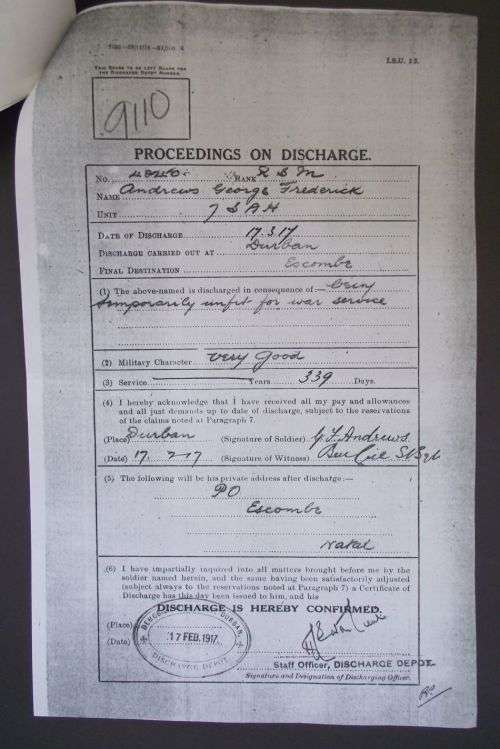 I.S.U. 13.
THIS SPACE TO BE LEFT BLANK FOR
THE DISCHARGE DEPOT NUMBER.
9110
PROCEEDINGS ON DISCHARGE.
No. RANK R S M
NAME Andrews George Frederick
UNIT 7 S A H
DATE OF DISCHARGE 17.3.17
DISCHARGE CARRIED OUT AT Durban
FINAL DESTINATION Escombe
(1) The above-named is discharged in consequence of:— being
temporarily unfit for war service
(2) Military Character Very Good
(3) Service Years 339 Days.
(4) I hereby acknowledge that I have received all my pay and allowances
and all just demands up to date of discharge, subject to the reservations
of the claims noted at Paragraph 7.
(Place) Durban (Signature of Soldier) G. F. Andrews
(Date) 17 2-17 (Signature of Witness)
(5) The following will be his private address after discharge:—
PO
Escombe
Natal
(6) I have impartially inquired into all matters brought before me by the
soldier named herein, and the same having been satisfactorily adjusted
(subject always to the reservations noted at Paragraph 7) a Certificate of
Discharge has this day been issued to him, and his
DISCHARGE IS HEREBY CONFIRMED.
(Place)
(Date) 17 FEB. 1917
DURBAN
DISCHARGE DEPOT
Staff Officer, DISCHARGE DEPOT.
Signature and Designation of Discharging Officer.